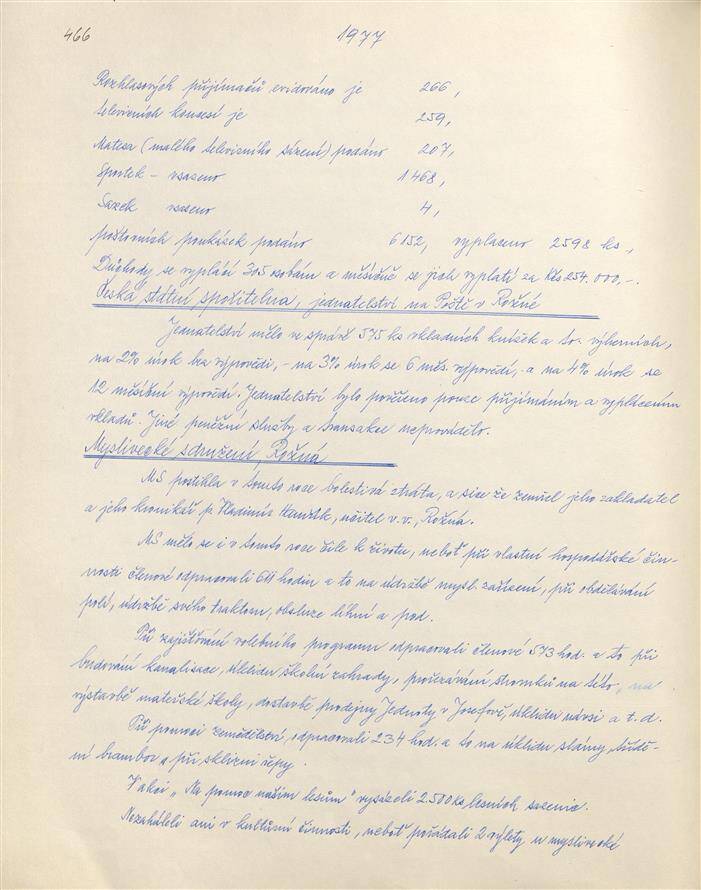 466
1977
Rozhlasových přijímačů evidováno je 266,
televizních koncesí je 259,
Matesa (malého televizního sázení) podáno 207,
Sportek - vsazeno 1468,
Sazek vsazeno 4,
poštovních poukázek podáno 6152, vyplaceno 2598 ks,
Důchody se vyplácí 305 osobám a měsíčně se jich vyplatí za Kčs 254.000,-.
Česká státní spořitelna, jednatelství na Poště v Rožné
Jednatelství mělo ve správě 575 ks vkladních knížek a to. výherních,
na 2% úrok bez výpovědi, - na 3% úrok se 6 měs. výpovědí, - a na 4% úrok se
12 měsíční výpovědí. Jednatelství bylo pověřeno pouze přijímáním a vyplácením
vkladů. Jiné peněžní služby a transakce neprovádělo.
Myslivecké sdružení, Rožná
MS postihla v tomto roce bolestivá ztráta, a sice že zemřel jeho zakladatel
a jeho kronikář p. Vladimír učitel v.v., Rožná.
MS mělo se i v tomto roce čile k životu, neboť při vlastní hospodářské čin-
nosti členové odpracovali 611 hodin a to na údržbě mysl. zařízení, při obdělávání
polí, údržbě svého traktoru, obsluze líhní a pod.
Při zajišťování volebního programu odpracovali členové 573 hod. a to při
budování kanalisace, úklidu školní zahrady, prořezávání stromků na této, na
výstavbě mateřské školy, dostavbě prodejny Jednoty v Josefově, úklidu návsi a t. d.
Při pomoci zemědělství, odpracovali 234 hod. a to na úklidu slámy, třídě-
ní brambor a při sklizni řepy.
V akci „Na pomoc našim lesům" vysázeli 2.500 ks lesních sazenic.
Nezaháleli ani v kulturní činnosti, neboť pořádali 2 výlety u myslivecké